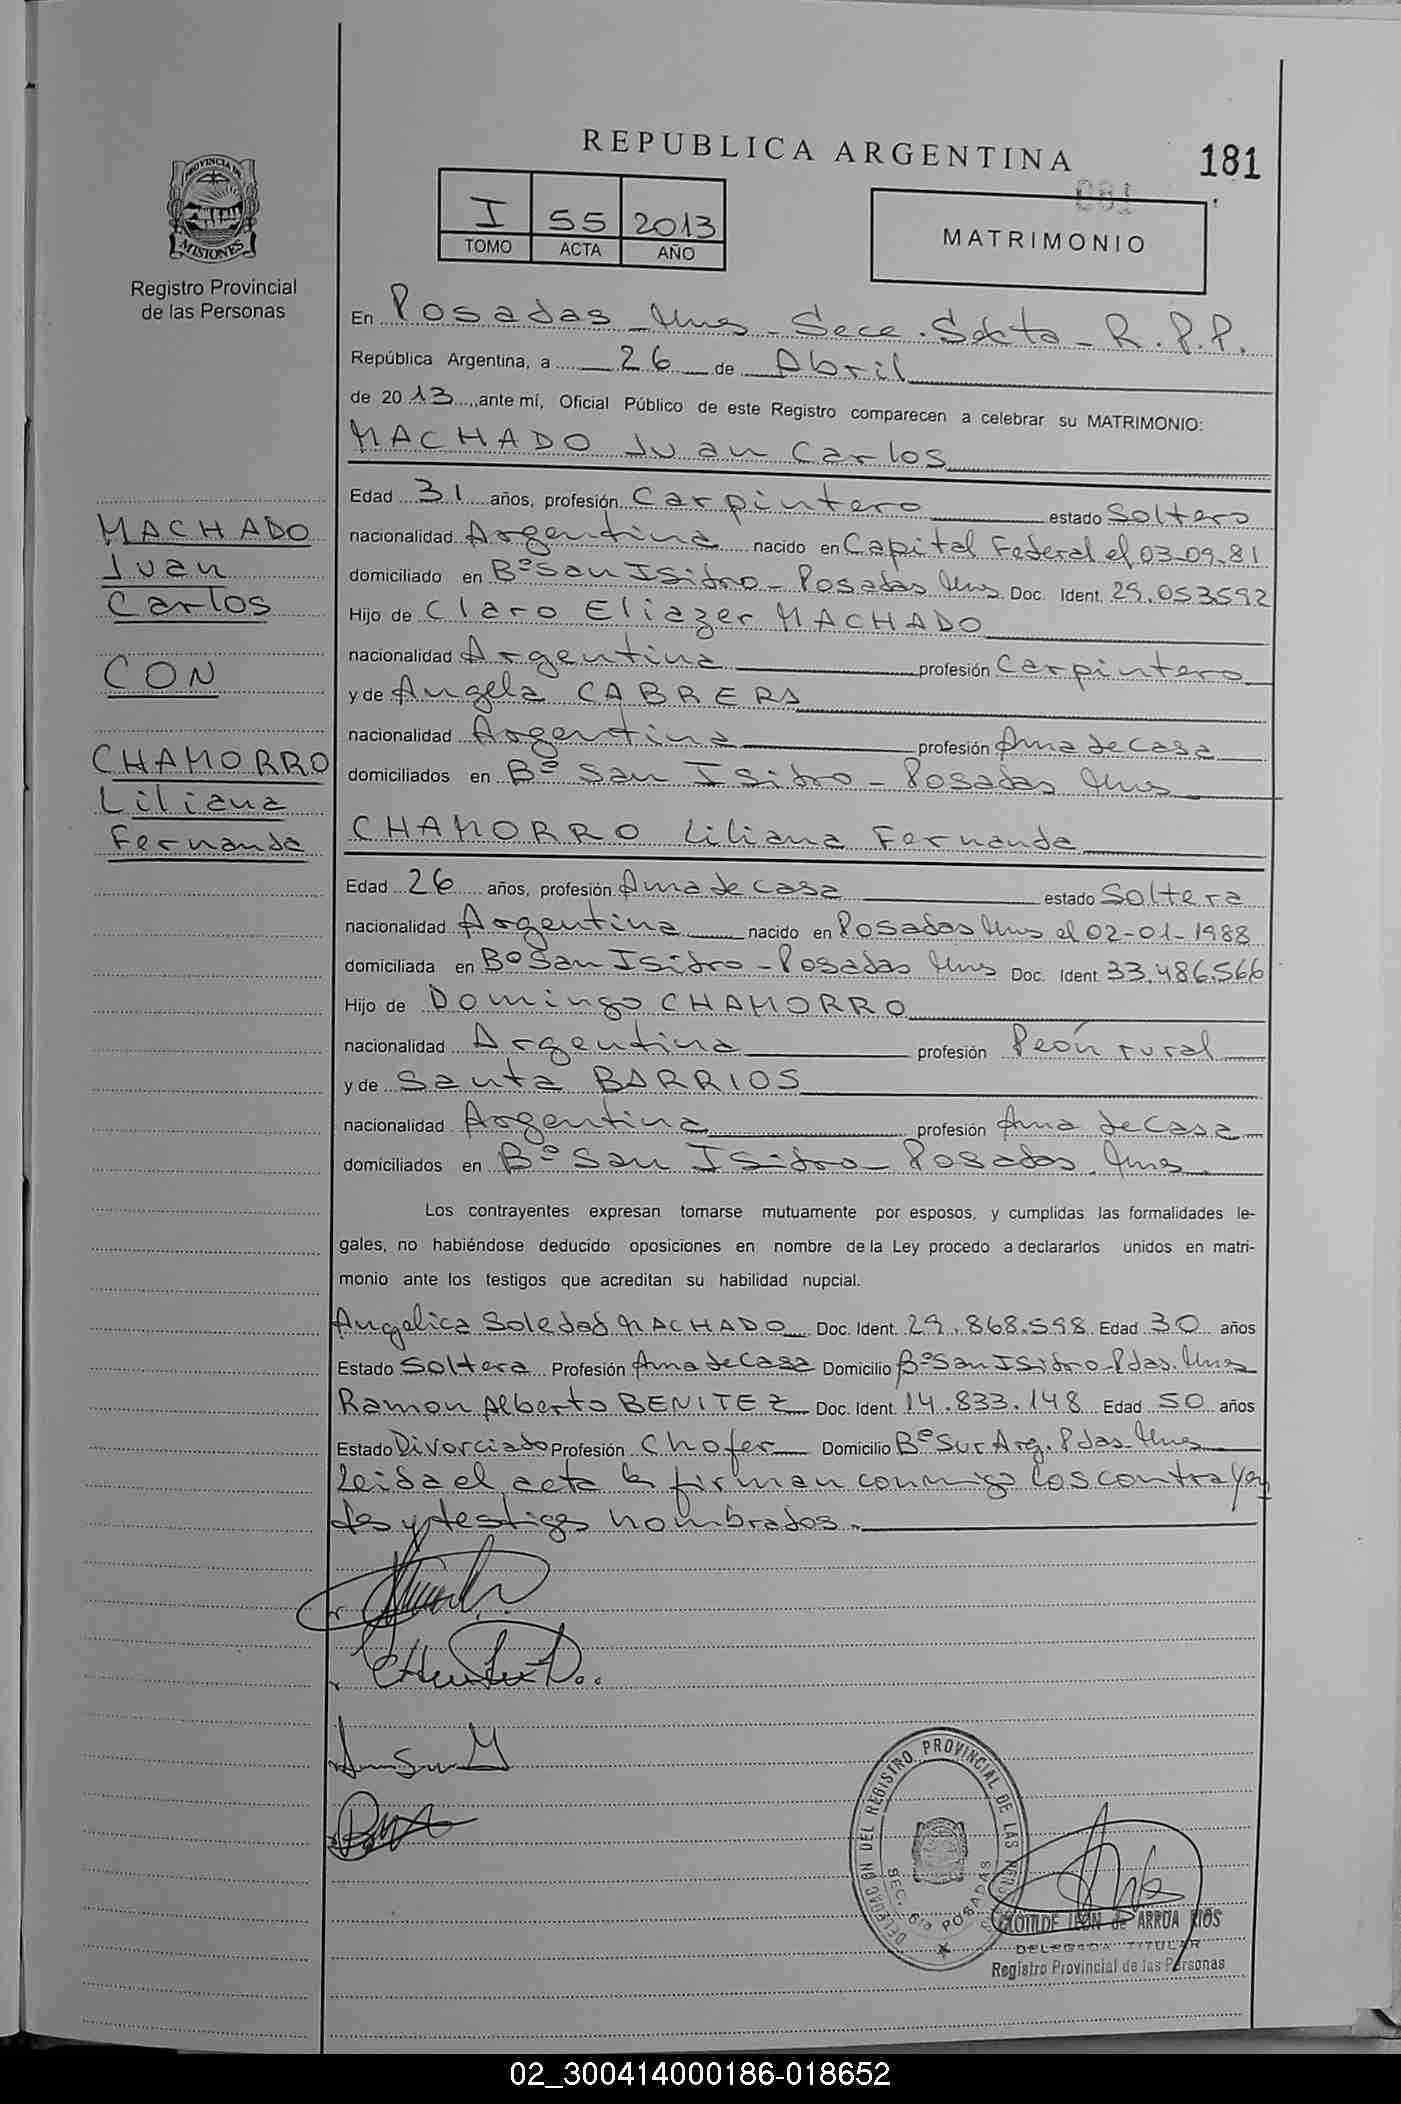 REPUBLICA ARGENTINA
181
I 55 2013
TOMO ACTA AÑO
MATRIMONIO
PROVINCIA DE
MISIONES
Registro Provincial
de las Personas
En Posadas Mnes - Secc. Sexta - R.P.P.
República Argentina, a 26 de Abril
de 2013, ante mí, Oficial Público de este Registro comparecen a celebrar su MATRIMONIO:
MACHADO Juan Carlos
Edad 31 años, profesión Carpintero estado Soltero
nacionalidad Argentina nacido en Capital Federal el 03-09-81
domiciliado en Bº San Isidro - Posadas Mnes Doc. Ident. 29.053.592
Hijo de Claro Eliazer MACHADO
nacionalidad Argentina profesión Carpintero
y de Angela CABRERA
nacionalidad Argentina profesión Ama de casa
domiciliados en Bº San Isidro - Posadas Mnes
CHAMORRO Liliana Fernanda
Edad 26 años, profesión Ama de casa estado Soltera
nacionalidad Argentina nacido en Posadas Mnes el 02-01-1988
domiciliada en Bº San Isidro - Posadas Mnes Doc. Ident. 33.486.566
Hijo de Domingo CHAMORRO
nacionalidad Argentina profesión Peón rural
y de Santa BARRIOS
nacionalidad Argentina profesión Ama de Casa
domiciliados en Bº San Isidro - Posadas Mnes
Los contrayentes expresan tomarse mutuamente por esposos, y cumplidas las formalidades le-
gales, no habiéndose deducido oposiciones en nombre de la Ley procedo a declararlos unidos en matri-
monio ante los testigos que acreditan su habilidad nupcial.
Angelica Soledad MACHADO Doc. Ident. 29.868.598 Edad 30 años
Estado Soltera Profesión Ama de Casa Domicilio Bº San Isidro - Pdas. Mnes
Ramon Alberto BENITEZ Doc. Ident. 14.833.148 Edad 50 años
Estado Divorciado Profesión Chofer Domicilio Bº Sur Arg. Pdas. Mnes
Leida el acta la firman conmigo los contrayen
tes y testigos nombrados.
MACHADO
Juan
Carlos
CON
CHAMORRO
Liliana
Fernanda
DELEGACION DEL REGISTRO PROVINCIAL DE LAS
SEC. 6ta POSADAS
CLOTILDE LEON de ARRUA RIOS
DELEGADA TITULAR
Registro Provincial de las Personas
02_300414000186-018652